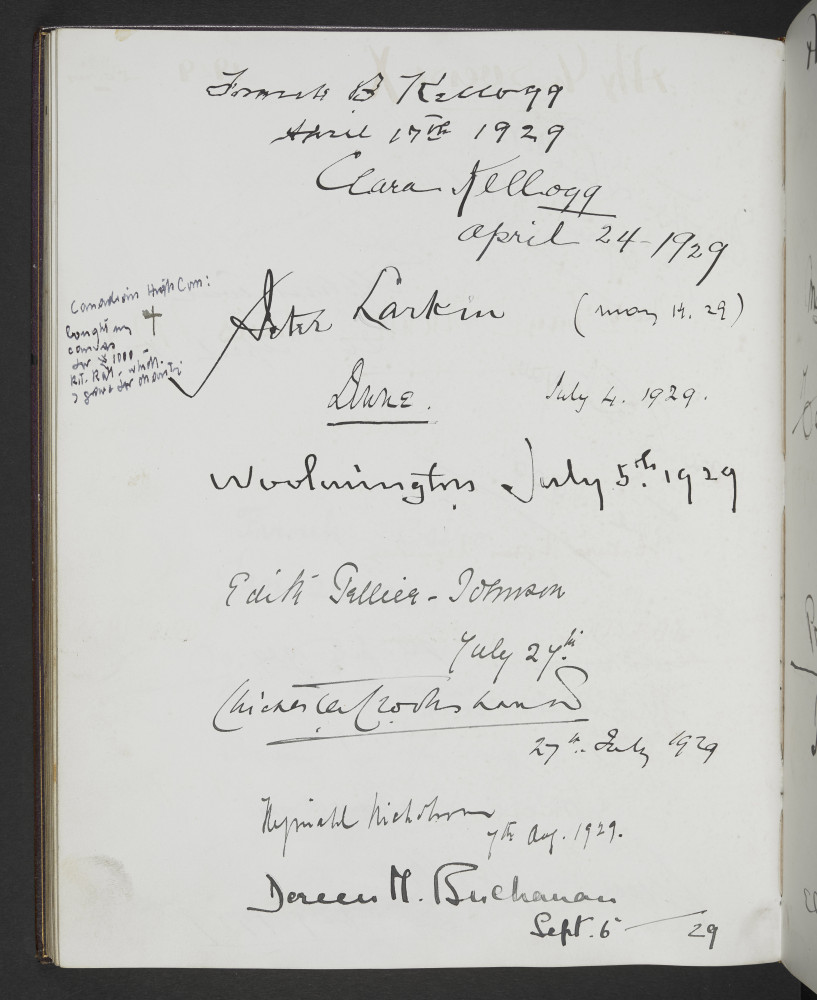 Frank B Kellogg
April 17th 1929
Clara Kellogg
april 24 - 1929
Canadian High Com:
bought my
canvas
for $1000
Peter Larkin (may 14. 29)
I gave for charity
July 4. 1929.
Woolmington July 5th. 1929
Edith Tellier-Johnson
July 27th.
Chichester Crookshank
27th. July 1929
Reginald Nicholson
7th Aug. 1929.
Doreen M. Buchanan
Sept. 6 — 29